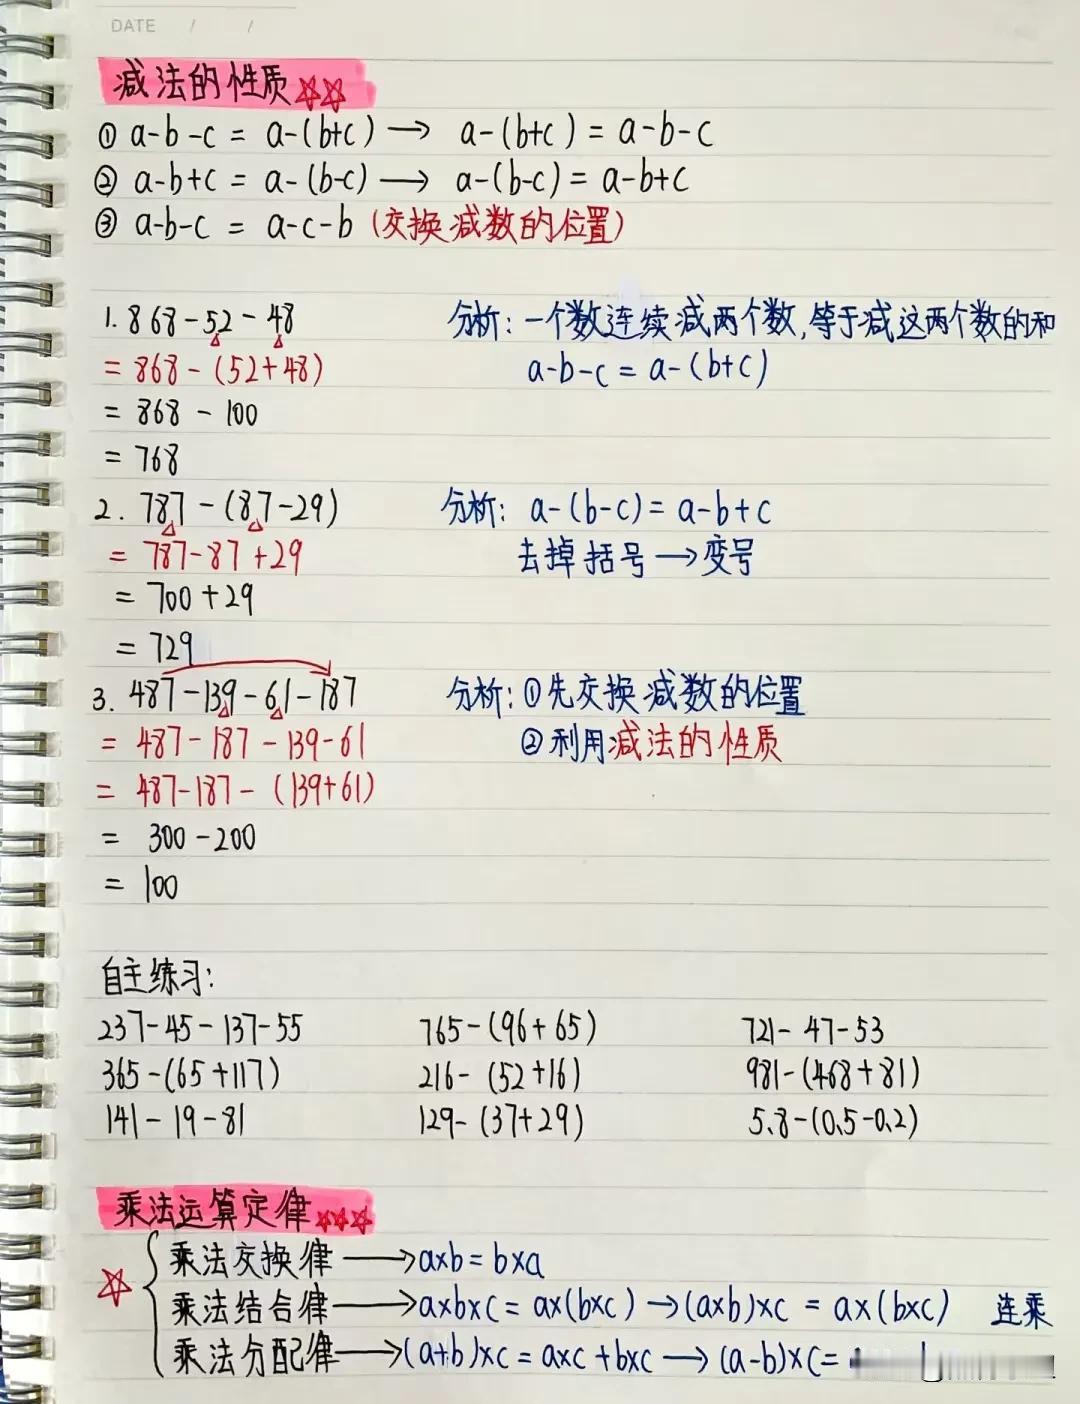 DATE / /
减法的性质☆☆
① a-b-c = a-(b+c) → a-(b+c) = a-b-c
② a-b+c = a-(b-c) → a-(b-c) = a-b+c
③ a-b-c = a-c-b (交换减数的位置)
1. 868-52-48 分析: 一个数连续减两个数,等于减这两个数的和
= 868-(52+48) a-b-c = a-(b+c)
= 868-100
= 768
2. 787-(87-29) 分析: a-(b-c) = a-b+c
= 787-87+29 去掉括号→变号
= 700+29
= 729
3. 487-139-61-187 分析: ①先交换减数的位置
= 487-187-139-61 ②利用减法的性质
= 487-187-(139+61)
= 300-200
= 100
自主练习:
237-45-137-55 765-(96+65) 721-47-53
365-(65+117) 216-(52+16) 981-(468+81)
141-19-81 129-(37+29) 5.8-(0.5-0.2)
乘法运算定律☆☆☆
乘法交换律→a×b=b×a
☆ 乘法结合律→a×b×c = a×(b×c)→(a×b)×c = a×(b×c) 连乘
乘法分配律→(a+b)×c = a×c+b×c→(a-b)×c=